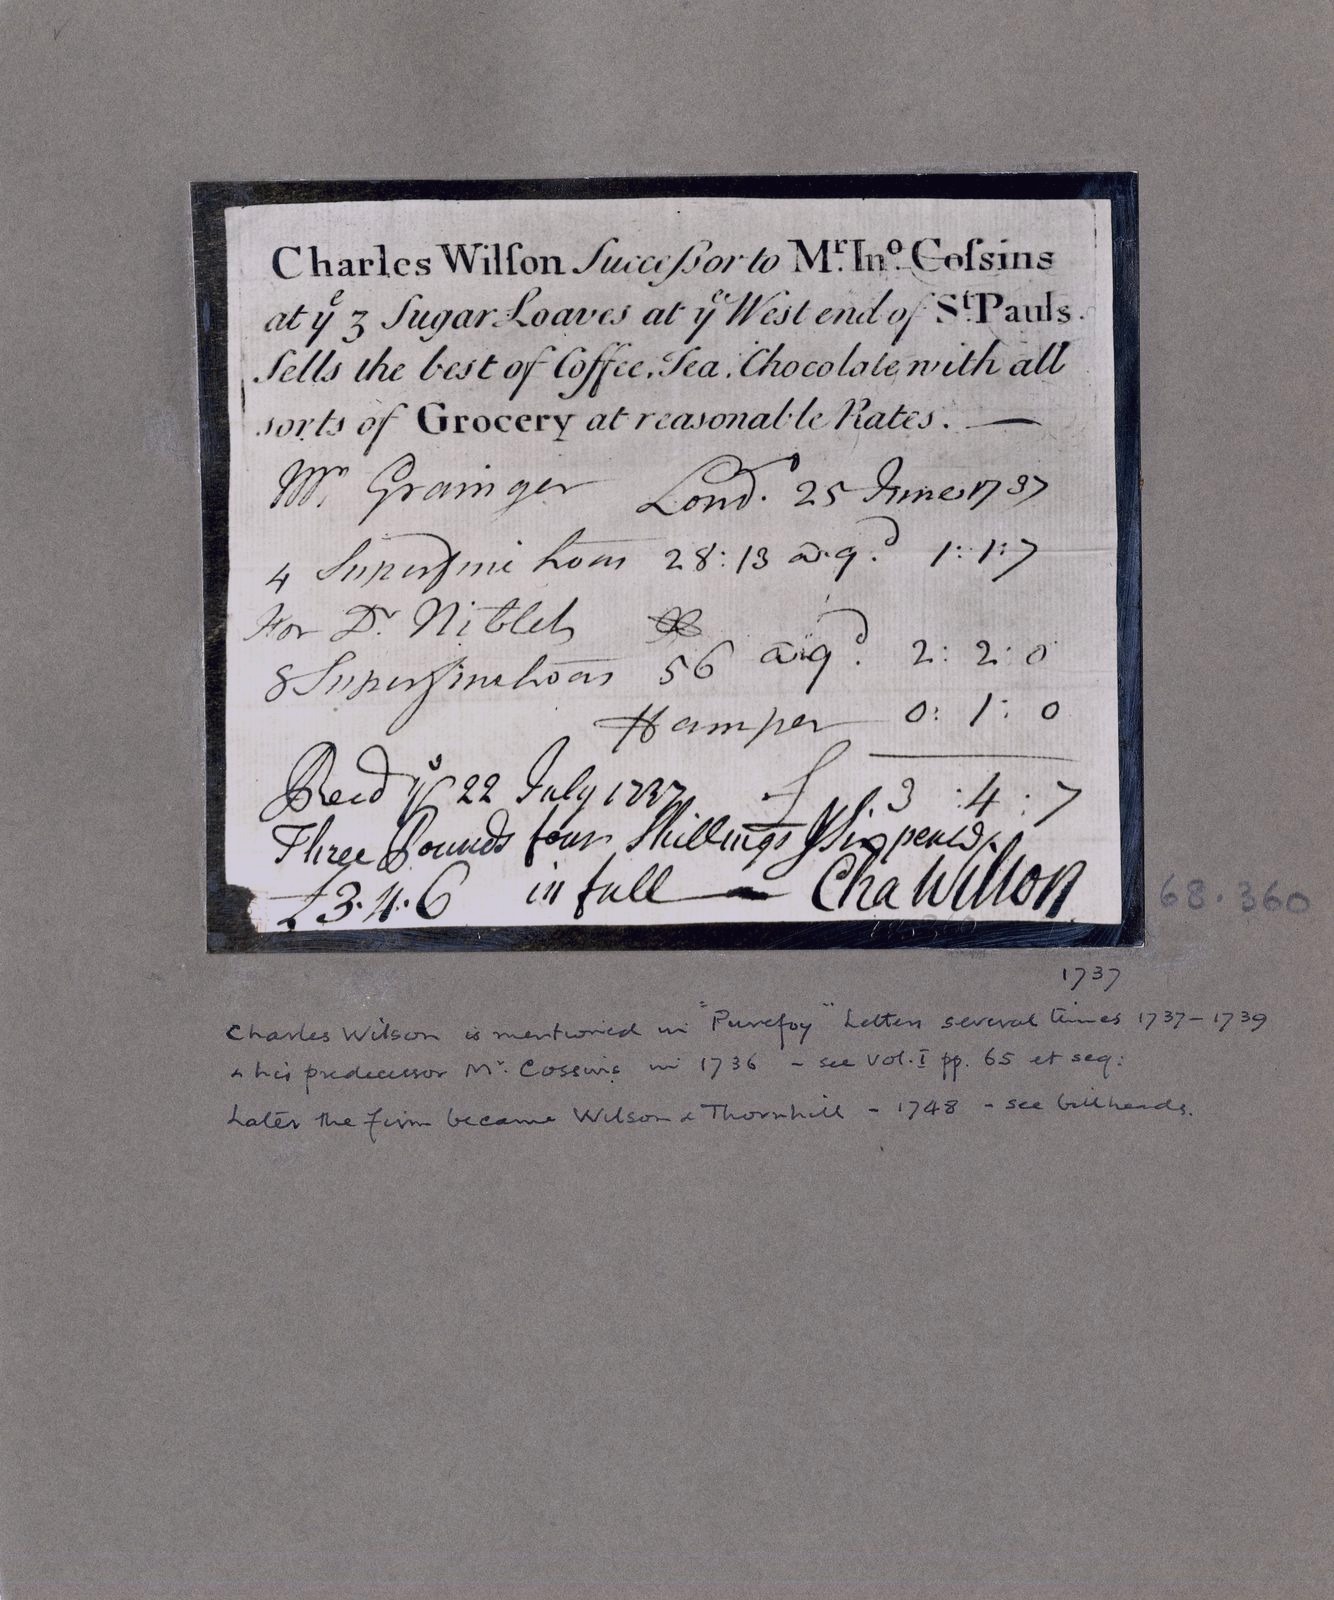 Charles Wilſon Succeſsor to Mr. Jno. Coſsins
at ye 3 Sugar Loaves at ye West end of St. Pauls.
Sells the best of Coffee, Tea, Chocolate, with all
sorts of Grocery at reasonable Rates. —
Mr Grainger Lond. 25 June 1737
4 Superfine Loavs 28:13 a 9d 1:1:7
For Dr Niblet
8 Superfine Loavs 56 a 9d 2:2:0
Hamper 0:1:0
Recd ye 22 July 1737 £ 3:4:7
Three Pounds four Shillings & Sixpence
£3.4.6 in full — Cha Wilson
68.360
1737
Charles Wilson is mentioned in "Purefoy" Letters several times 1737–1739
& his predecessor Mr. Cossins in 1736 – see Vol. I pp. 65 et seq:
Later the firm became Wilson & Thornhill – 1748 – see billheads.